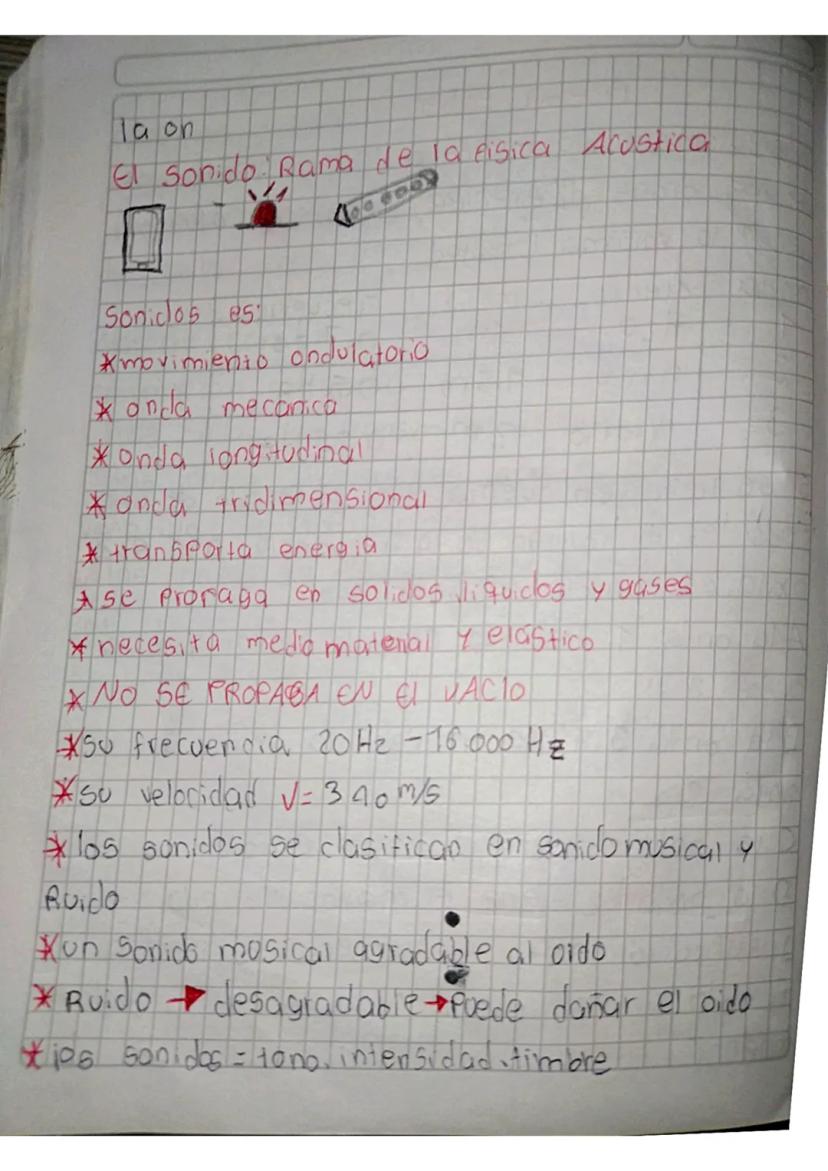 la on
El sonido: Rama de la Fisica Acustica
Sonidos es:
*movimiento ondulatorio
* onda mecanica
* onda longitudinal
* onda tridimensional
* transporta energia
* se propaga en solidos liquidos y gases
* necesita medio material y elastico
* NO SE PROPAGA EN El VACIO
*su frecuencia 20Hz - 16.000 Hz
*su velocidad V= 340 m/s
* los sonidos se clasifican en sonido musical y
Ruido
*un sonido musical agradable al oido
* Ruido → desagradable → Puede dañar el oido
* los sonidos = tono, intensidad, timbre